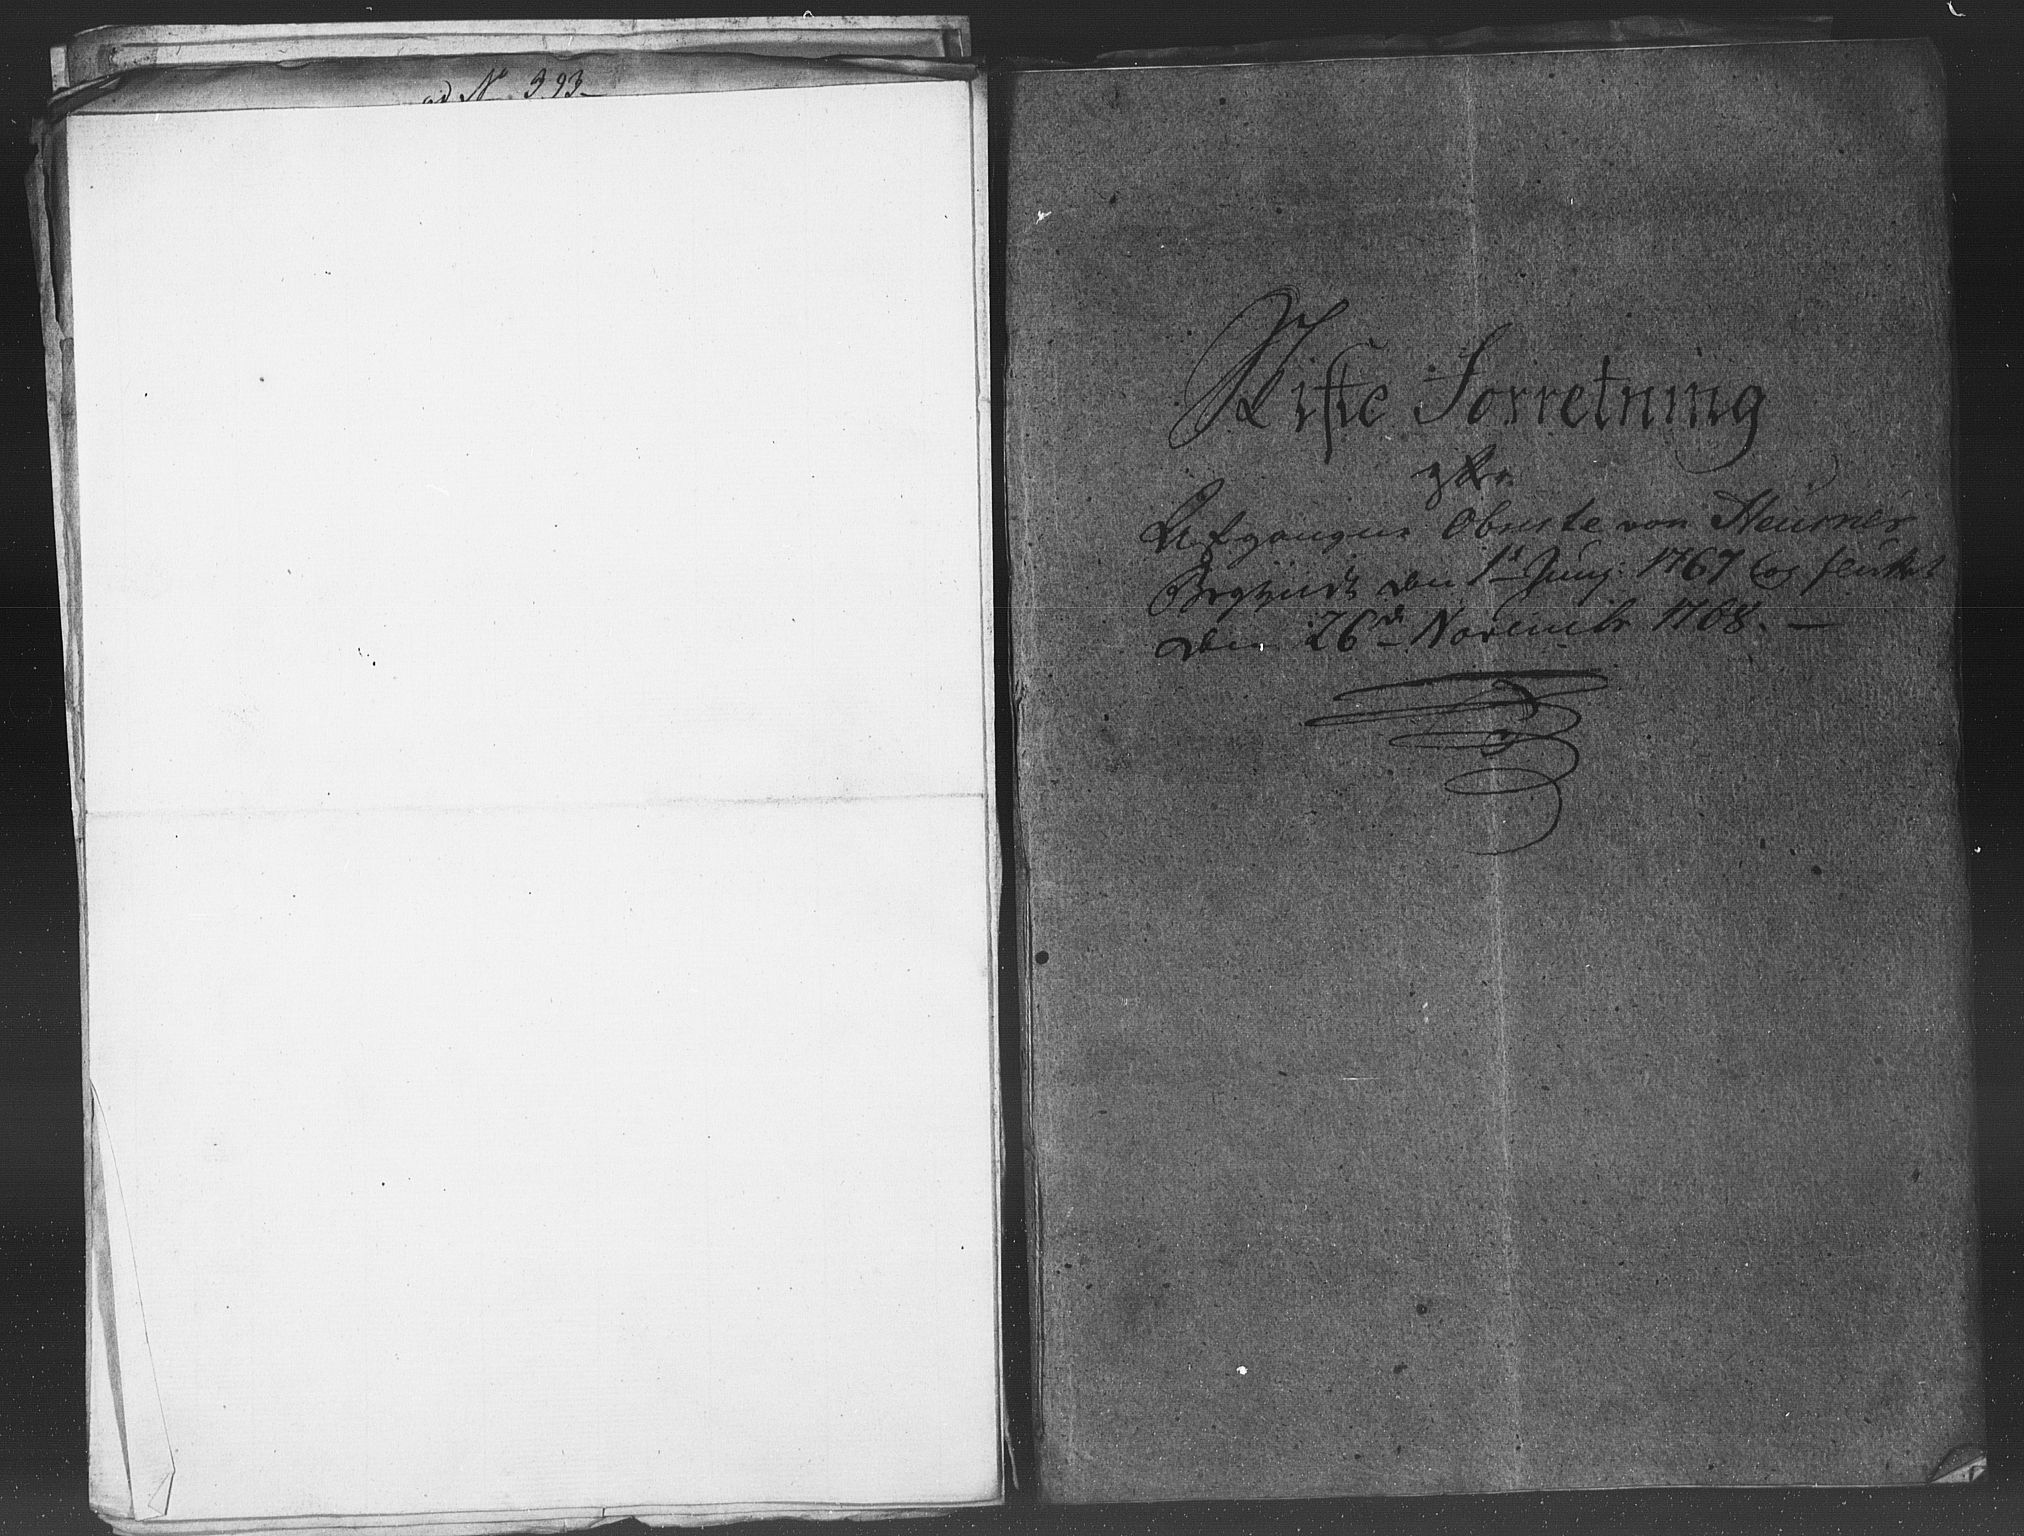 ad No 393.
Skifte Forretning
efter
Afgangne Obriste von Heusner
Begyndt den 1te Junij: 1767 og sluttet
den 26de Novembr 1768. —